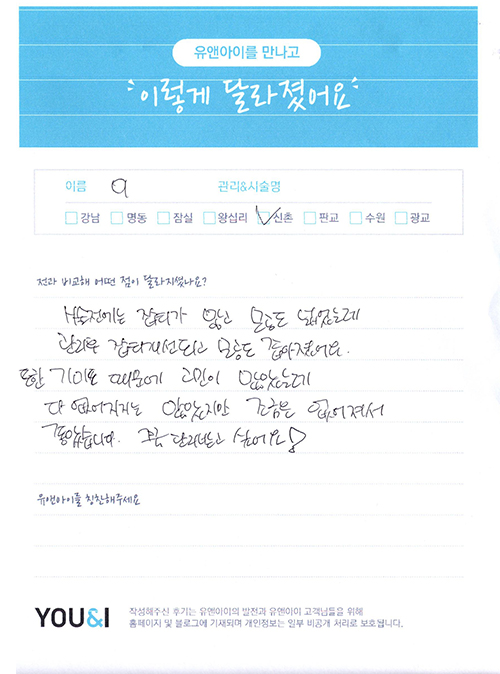 유앤아이를 만나고
이렇게 달라졌어요
이름 이 관리&시술명
강남 명동 잠실 왕십리 신촌 판교 수원 광교
전과 비교해 어떤 점이 달라지셨나요?
시술전에는 잡티가 많고 모공도 넓었는데
관리후 잡티개선되고 모공도 좁아졌어요.
또한 기미도 때문에 고민이 많았는데
다 없어지지는 않았지만 조금은 없어져서
좋았습니다. 더 싶어요!
유앤아이를 칭찬해주세요
YOU&I
작성해주신 후기는 유앤아이의 발전과 유앤아이 고객님들을 위해
홈페이지 및 블로그에 기재되며 개인정보는 일부 비공개 처리로 보호됩니다.